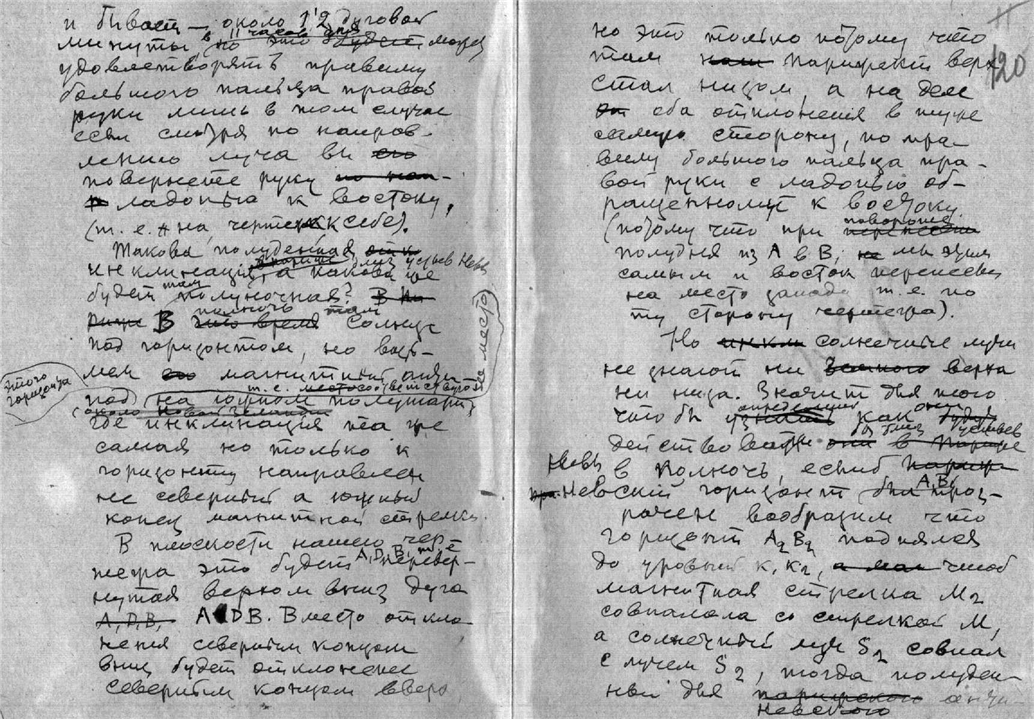 и бывает — около 1'2 дуговой
минуты в 11 часов дня но это может
удовлетворять правилу
большого пальца правой
руки лишь в том случае
если смотря по направ-
лению луча вы его
повернете руку
ладонью к востоку,
(т. е. на чертеже к себе).
Такова полуденная
инклинация, а какова же
будет там полуночная? В
В полночь там солнце
под горизонтом, но возь-
мем магнитный
этого
горизонта
под на южном полушарии
т. е. место
на место
(около Новой Зеландии
где инклинация та же
самая но только к
горизонту направлен
не северный а южный
конец магнитной стрелки.
В плоскости нашего чер-
тежа это будет перевер-
A,D,B,
нутая верхом вниз дуга
A,D,B, ADB. Вместо откло-
нения северным концом
вниз будет отклонение
северным концом вверх
120
но это только потому что
там парижский верх
стал низом, а на деле
оба отклонения в ту же
самую сторону, по пра-
вилу большого пальца пра-
вой руки с ладонью об-
ращенною к востоку
(потому что при повороте
полудня из A в B, мы этим
самым и восток перенесли
на место запада т. е. по
ту сторону чертежа).
Но солнечные лучи
не знают ни верха
ни низа. Значит для того
чтобы определить как они
действовали бы близ устьев
Невы
в полночь, если б
Невский горизонт был A,B, проз-
рачен вообразим что
горизонт A₂B₂ поднялся
до уровня K,K₂, чтоб
магнитная стрелка M₂
совпала со стрелкой M,
а солнечный луч S₂ совпал
с лучем S₂, тогда полуден-
ный для парижского
Невского